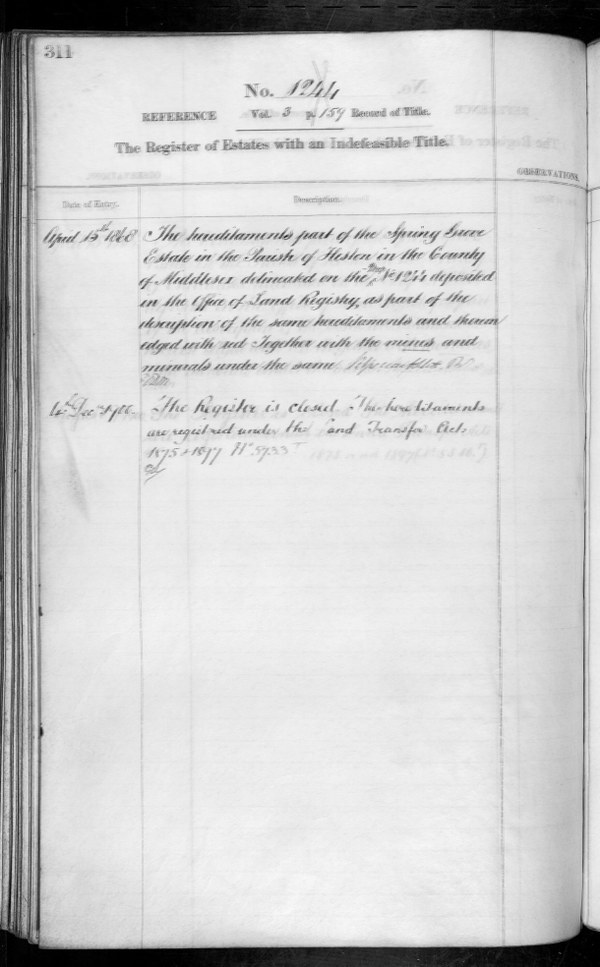 311
No. 1244
REFERENCE Vol. 3 p. 159 Record of Title.
The Register of Estates with an Indefeasible Title.
OBSERVATIONS.
Date of Entry. Description.
April 15th 1868 The hereditaments part of the Spring Grove
Estate in the Parish of Heston in the County
of Middlesex delineated on the Map No 1244 deposited
in the Office of Land Registry, as part of the
description of the same hereditaments and thereon
edged with red Together with the mines and
minerals under the same
4th Dec 1900. The Register is closed The hereditaments
are registered under the Land Transfer Acts
1875 & 1897 No 5933